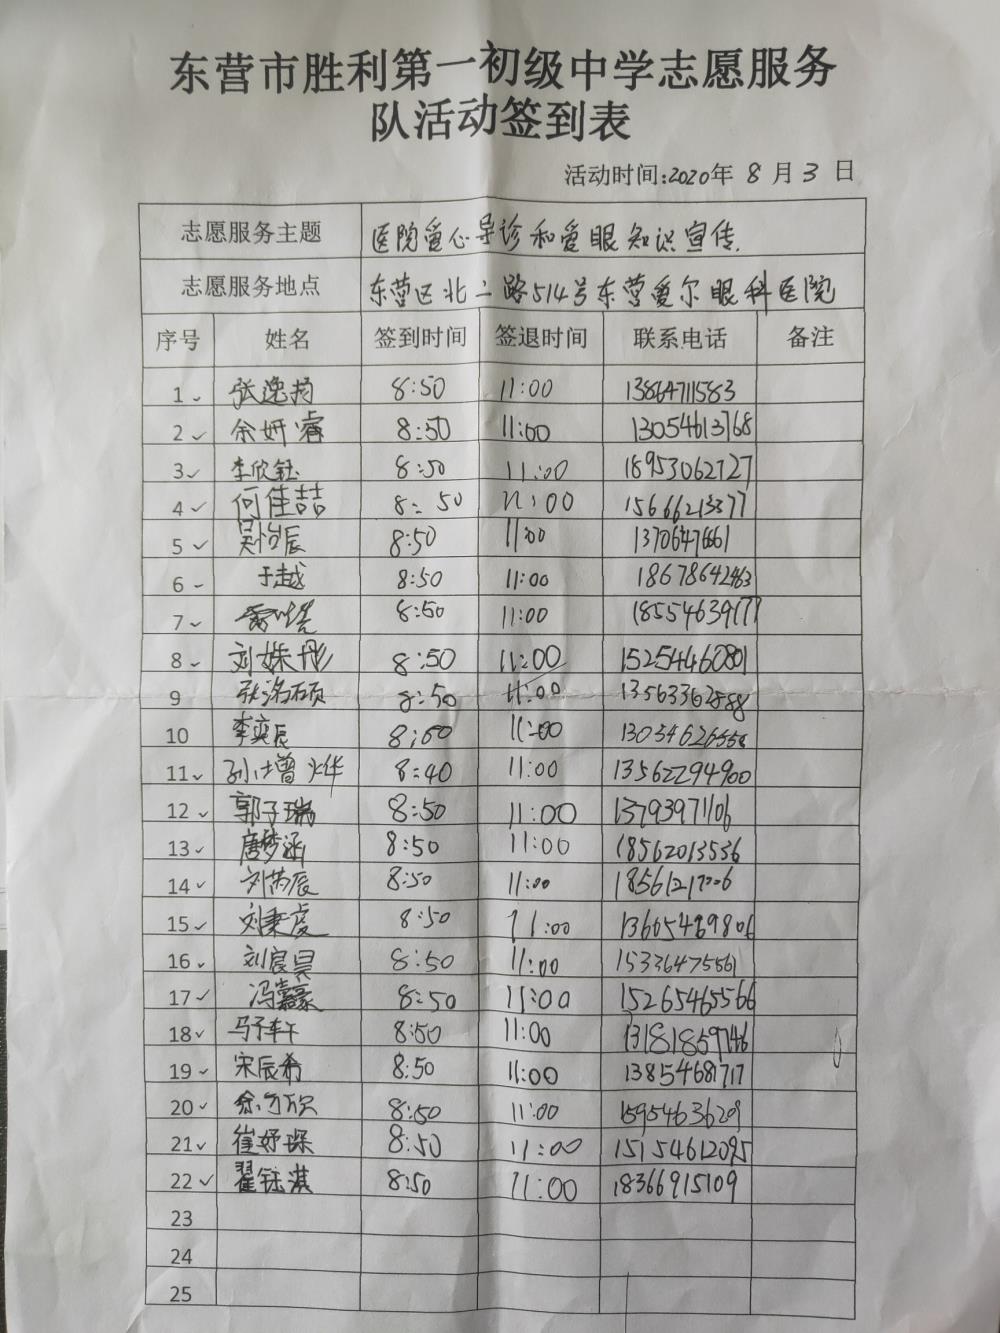 东营市胜利第一初级中学志愿服务
队活动签到表
活动时间:2020年 8 月 3 日
志愿服务主题 医院爱心导诊和爱眼知识宣传.
志愿服务地点 东营区北二路514号东营爱尔眼科医院
序号 姓名 签到时间 签退时间 联系电话 备注
1 张逸扬 8:50 11:00 13864711583
2 余妍睿 8:50 11:00 13054613768
3 李欣钰 8:50 11:00 18953062727
4 何佳喆 8:50 11:00 15666213377
5 吴怡辰 8:50 11:00 13706476661
6 于越 8:50 11:00 18678642463
7 8:50 11:00 18554639777
8 刘姝彤 8:50 11:00 15254460801
9 张洺硕 8:50 11:00 13563362888
10 李奕辰 8:50 11:00
11 孙增烨 8:40 11:00 13562294900
12 郭子瑞 8:50 11:00 13793971106
13 唐梦涵 8:50 11:00 18562013536
14 刘芮辰 8:50 11:00
15 刘秉虔 8:50 11:00 13605469806
16 刘宸昊 8:50 11:00 15336475561
17 冯嘉豪 8:50 11:00 15265465566
18 马子车干 8:50 11:00 13181859746
19 宋辰希 8:50 11:00 13854681717
20 8:50 11:00 15954636209
21 崔妤琛 8:50 11:00 15154612095
22 翟钰淇 8:50 11:00 18366915109
23
24
25